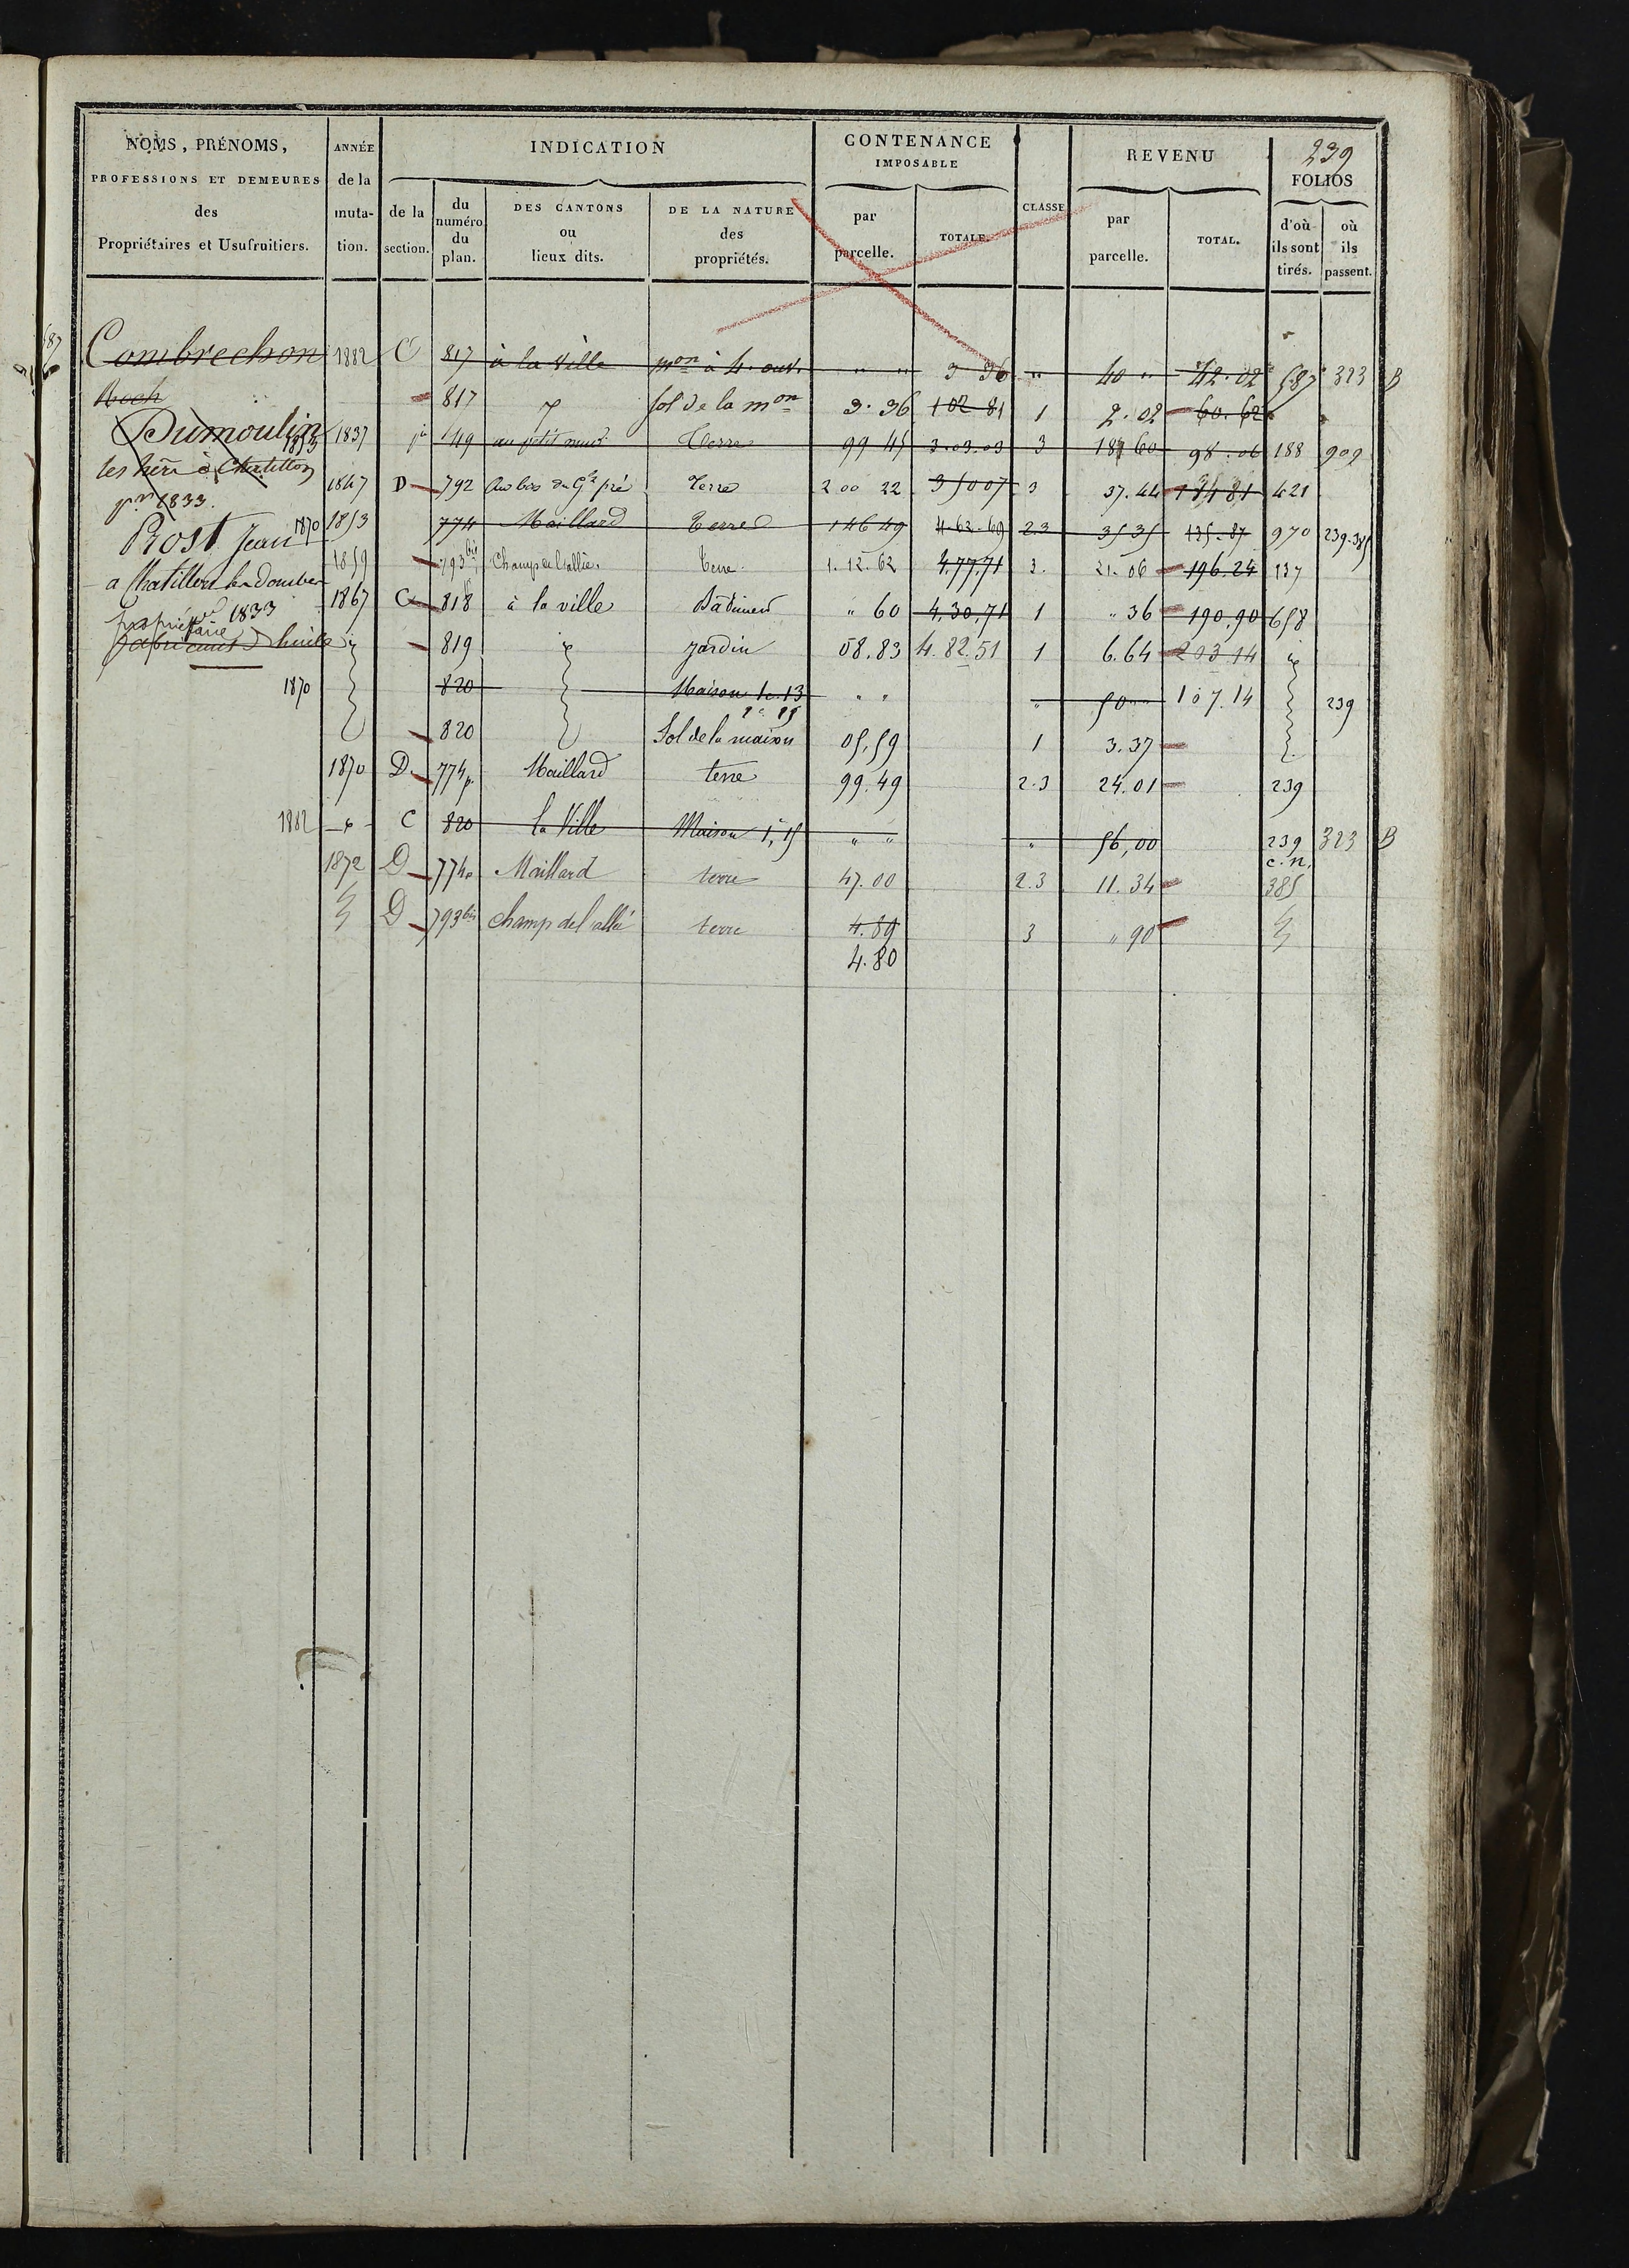 239
NOMS, PRÉNOMS, PROFESSIONS ET DEMEURES des Propriétaires et Usufruitiers. | ANNÉE de la muta- tion. | INDICATION | CONTENANCE IMPOSABLE | CLASSE | REVENU | FOLIOS
de la section. | du numéro du plan. | DES CANTONS ou lieux dits. | DE LA NATURE des propriétés. | par parcelle. | TOTALE. | par parcelle. | TOTAL. | d'où ils sont tirés. | où ils passent.
587
Combrechon 1882 C 817 à la ville mon à 4. ouv. " " 3 36 " 40 " 42.02 587 323 B
Roch
817 sol de la mon 3.36 102 81 1 2.02 60.62
Dumoulin 1853
1837 149 au petit Terre 99 45 3.03.03 3 98.06 188 909
les héri à Chatillon
pre 1833.
1847 D 792 Au bas du Gd pré Terre 2 00 22 3 37.44 421
Rost Jean 1870
1853 774 Maillard Terre 1 46 49 4.62.69 2.3 35 35 135.87 970 239.385
a Chatillon les Dombes
1859 793 bis Champ de l'allée. Terre 1.12.62 4,77,71 3. 21.06 196.24 137
propriétaire 1833
1867 C 818 à la ville Bâtiment " 60 4,30,71 1 " 36 190,90 658
fabricant d'huile
819 Jardin 08.83 4.82.51 1 6.64 203 14
1870 820 Maison 1c. 13 " " " 50 " " 107.14 239
820 Sol de la maison 05,59 1 3.37
1870 D 774p Maillard terre 99.49 2.3 24.01 239
1882 C 820 la Ville Maison " " " 56,00 239 323 B
c.n.
1872 D 774p Maillard terre 47.00 2.3 11.34 385
D 793 bis champ de l'allée terre 4.89 3 " 90
4.80